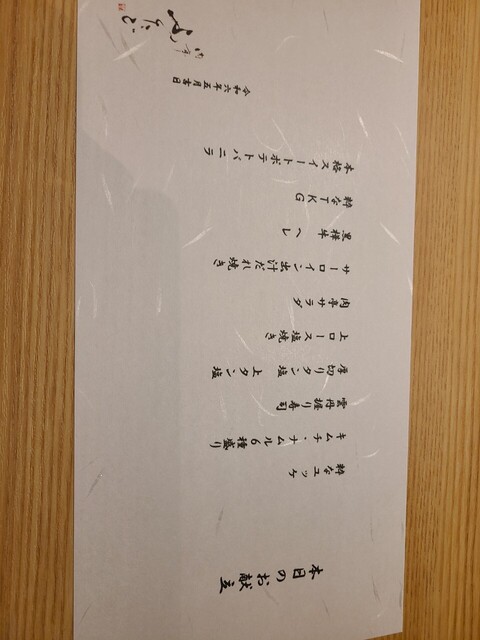 本日のお献立
粋なユッケ
キムチ・ナムル6種盛り
雲丹握り寿司
厚切りタン塩 上タン塩
上ロース塩焼き
肉亭サラダ
サーロイン出汁だれ焼き
黒樺牛 ヘレ
粋なTKG
本格スイートポテトバニラ
令和六年五月吉日
肉亭 ふたご